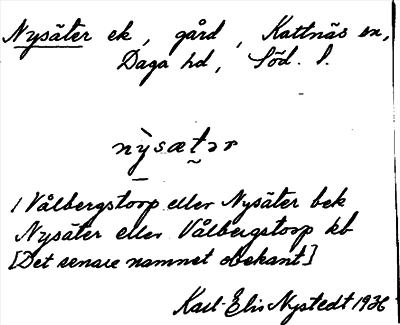 Nysäter ek, gård, Kattnäs sn,
Daga hd, Söd. l.
nỳsætər
1 Vålbergstorp eller Nysäter bek
Nysäter eller Vålbergstorp kb
[Det senare namnet obekant]
Karl-Elis Nystedt 1936